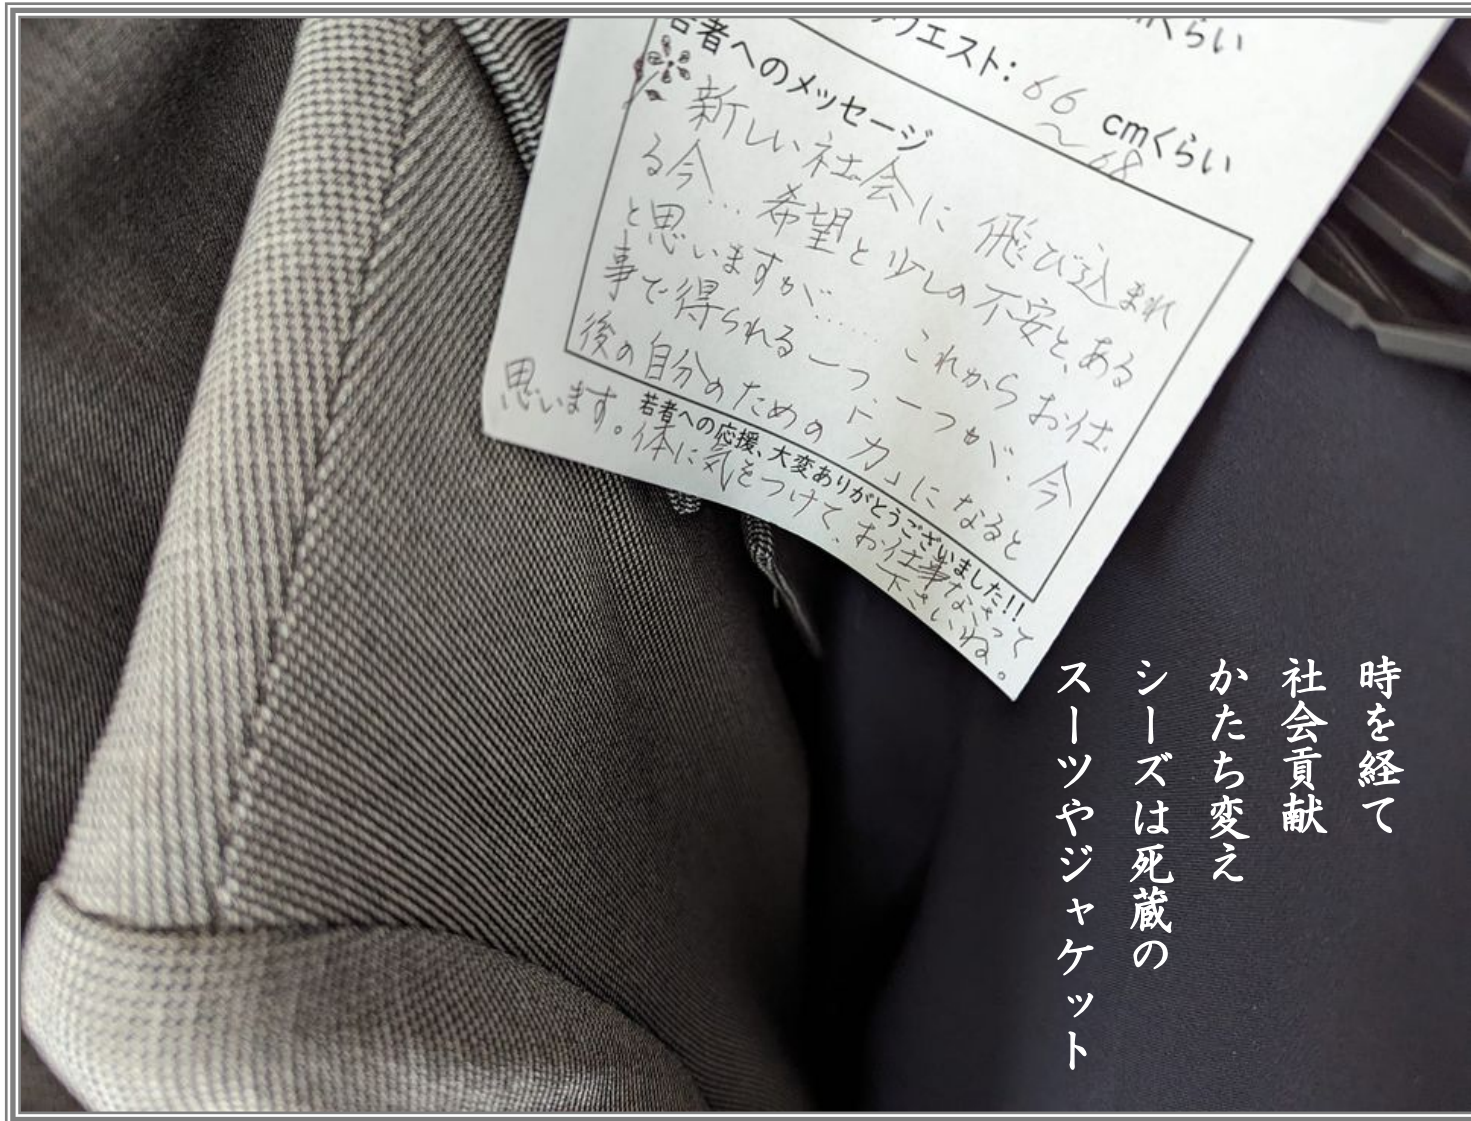 くらい
ウエスト: 66 cmくらい
～68
若者へのメッセージ
新しい社会に飛び込まれ
る今…希望と少しの不安と、ある
と思いますが……これからお仕
事で得られる一つ、一つが、今
後の自分のための「力」になると
思います。体に気をつけて、お仕事なさって
下さいね。
若者への応援、大変ありがとうございました!!
時を経て
社会貢献
かたち変え
シーズは死蔵の
スーツやジャケット